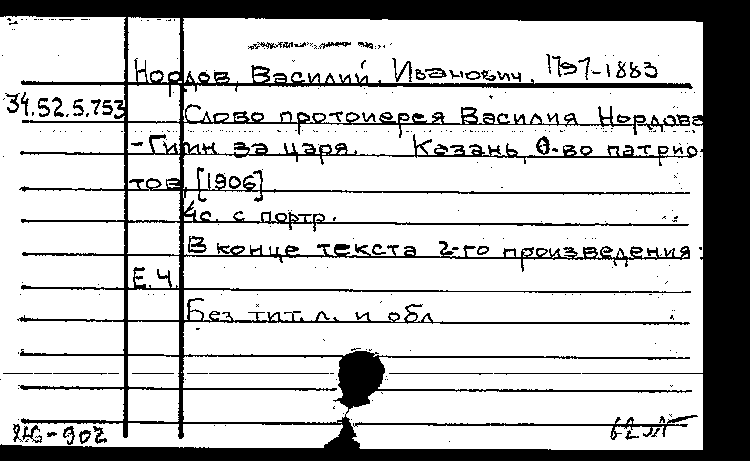 Нордов, Василий Иванович, 1797-1883
34.52.5.753
Слово протоиерея Василия Нордова
-Гимн за царя. Казань, О-во патрио-
тов, [1906]
4с. с портр.
В конце текста 2-го произведения:
Е.Ч.
Без тит. л. и обл
-902